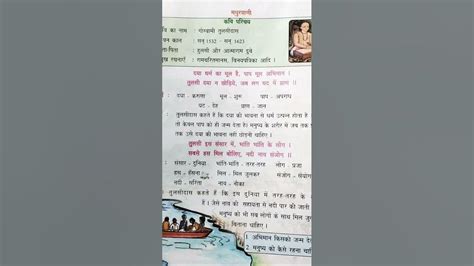 मधुरवाणी
कवि परिचय
का नाम : गोस्वामी तुलसीदास
काल : सन् 1532 - सन् 1623
माता-पिता : हुलसी और आत्माराम दुबे
रचनाएँ : रामचरितमानस, विनयपत्रिका आदि ।
दया धर्म का मूल है, पाप मूल अभिमान ।
तुलसी दया न छोड़िये, जब लग घट में प्राण ।।
: दया - करुणा मूल - पाप - अपराध
घट - देह प्राण - जान
: तुलसीदास कहते हैं कि दया की भावना से धर्म उत्पन्न होता है
तो केवल पाप को ही जन्म देता है। मनुष्य के शरीर में जब तक
तक उसे दया की भावना नहीं छोड़नी चाहिए ।
तुलसी इस संसार में, भांति भांति के लोग ।
सबसे हस मिल बोलिए, नदी नाव संजोग ।।
: संसार - दुनिया भांति-भांति - तरह-तरह लोग - प्रजा
हस - हँसना मिल - मिल जुलकर संजोग - संयोग
नदी - सरिता नाव - नौका
तुलसीदास कहते हैं कि इस दुनिया में तरह-तरह के
है। जैसे नाव की सहायता से नदी पार की जाती
मनुष्य को भी सब लोगों के साथ मिल
बिताना चाहिए ।
1. अभिमान किसको जन्म दे
2. मनुष्य को कैसे रहना चाहि